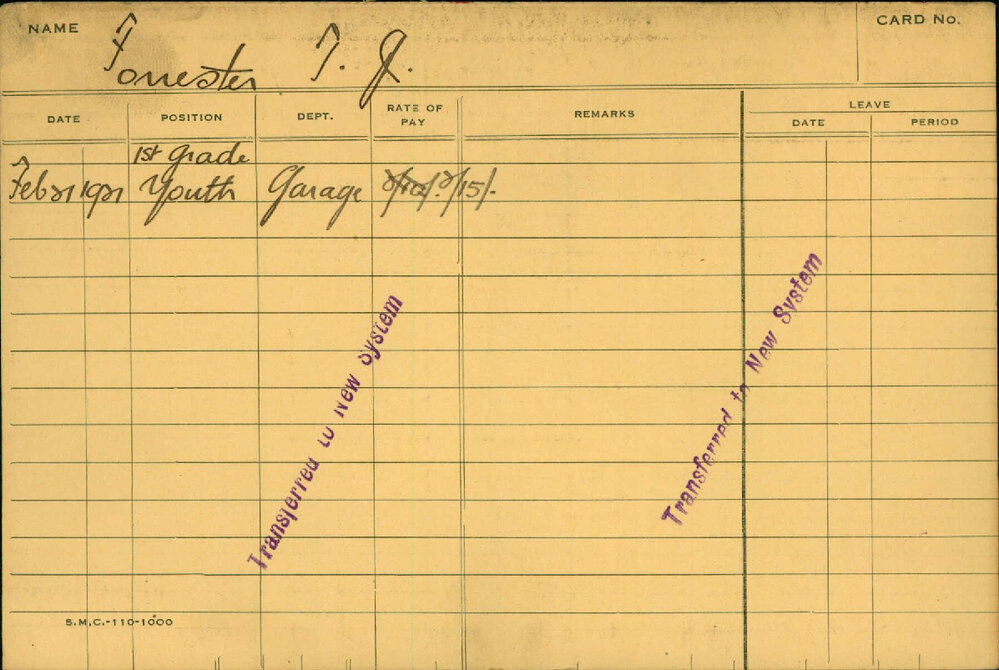 NAME Forrester T. J. CARD No.
DATE POSITION DEPT. RATE OF PAY REMARKS LEAVE
DATE PERIOD
1st grade
Feb 21 1921 Youth Garage 2/15/-
Transferred to New System
Transferred to New System
S.M.C.-110-1000